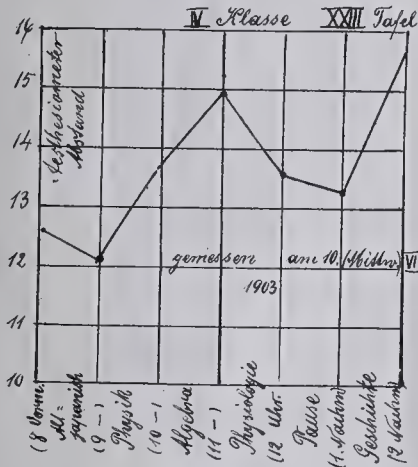 IV Klasse XXIII Tafel
14
15
14
13
12
11
10
Aesthesiometer
Abstand
gemessen am 10. (Mittw.) VI
1903
(8 Vorm.
Alt=
japanisch
(9 —)
Physik
(10 —)
Algebra
(11 —)
Physiologie
(12 Uhr.
Pause
(1 Nachm)
Geschichte
(2 Nachm)